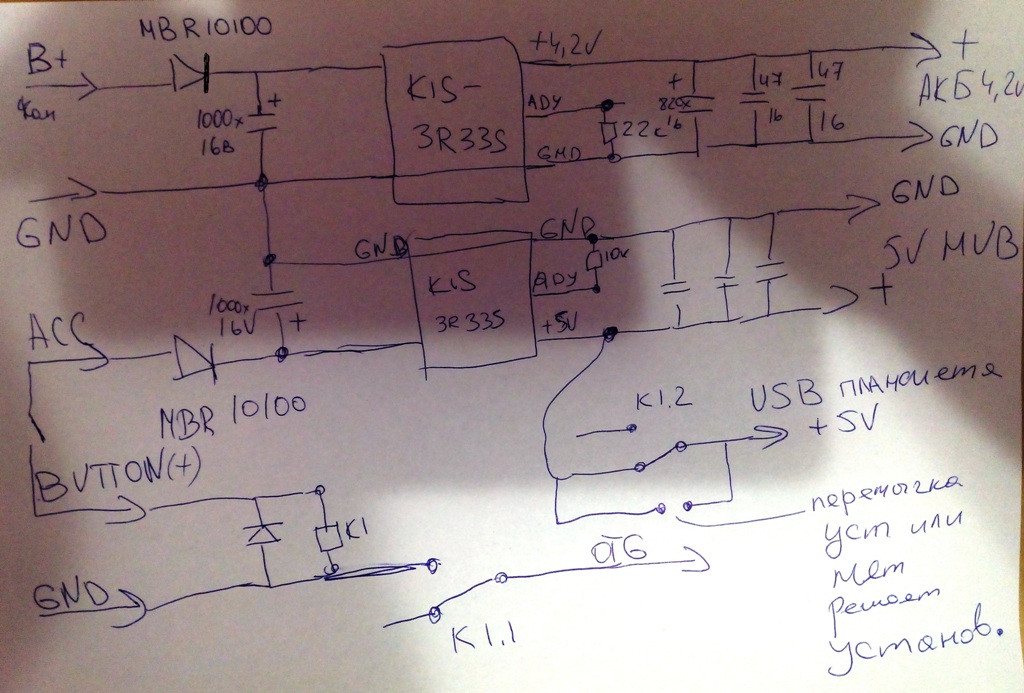 MBR10100
B+
+4,2V
+
KIS-
3R33S
ADY
GND
1000x
16В
+
22с
+
820x
16
47
16
47
16
+
АКБ 4,2v
GND
GND
GND
GND
GND
5V MVB
10к
KIS
3R33S
ADY
+5V
+
1000x
16V
+
ACC
MBR 10100
K1.2
USB планшета
+5V
BUTTON(+)
K1
GND
K1.1
OTG
перемычка
уст или
нет
решает
установ.